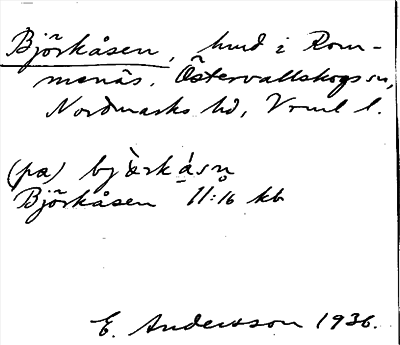 Björkåsen, hmd i Rom-
menäs. Östervallskogs sn,
Nordmarks hd, Vrml l.
(pa) bjærkåsn̥
Björkåsen 11:16 kb
E. Andersson 1936.